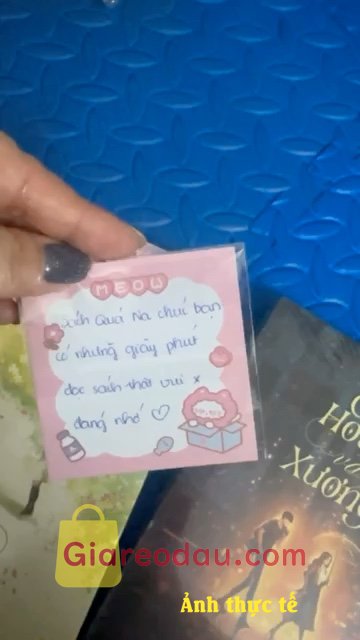 MEOW
Sách Quá Na chúc bạn
có những giây phút
đọc sách thật vui x
đáng nhớ ♡
Xương
Giareodau.com
Ảnh thực tế